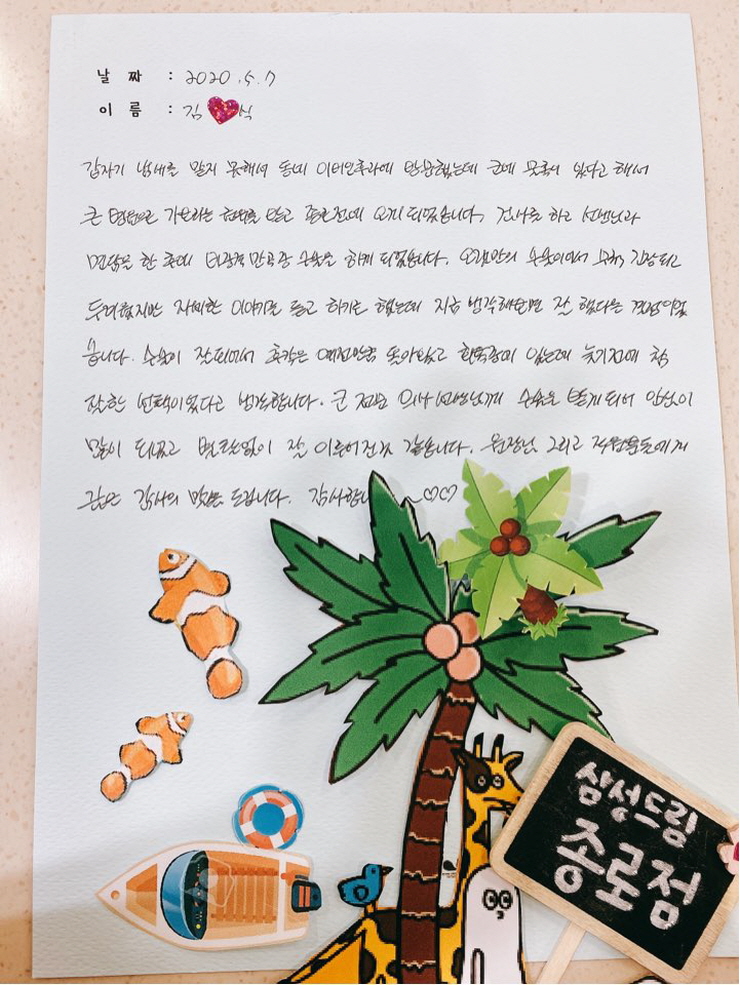 날 짜 : 2020.5.7
이 름 : 김 식
갑자기 냄새를 맡지 못해서 동네 이비인후과에 방문했는데 코에 물혹이 있다고 해서
큰 병원으로 가보라는 권유를 받고 종로점에 오게 되었습니다. 검사를 하고 선생님과
면담을 한 후에 비중격만곡증 수술을 하게 되었습니다. 오랜만의 수술이어서 무척 긴장되고
두려웠지만 자세한 이야기를 듣고 하기로 했는데 지금 생각해보면 잘 했다는 결정이었
습니다. 수술이 잘되어서 후각은 예전만큼 돌아왔고 회복중에 있는데 늦기전에 참
잘한 선택이었다고 생각합니다. 큰 의사 선생님께 수술을 받게되어 안심이
많이 되었고 별 탈없이 잘 이루어진것 같습니다. 원장님 그리고 직원분들에게
깊은 감사의 말씀을 드립니다. 감사합니
삼성드림
종로점